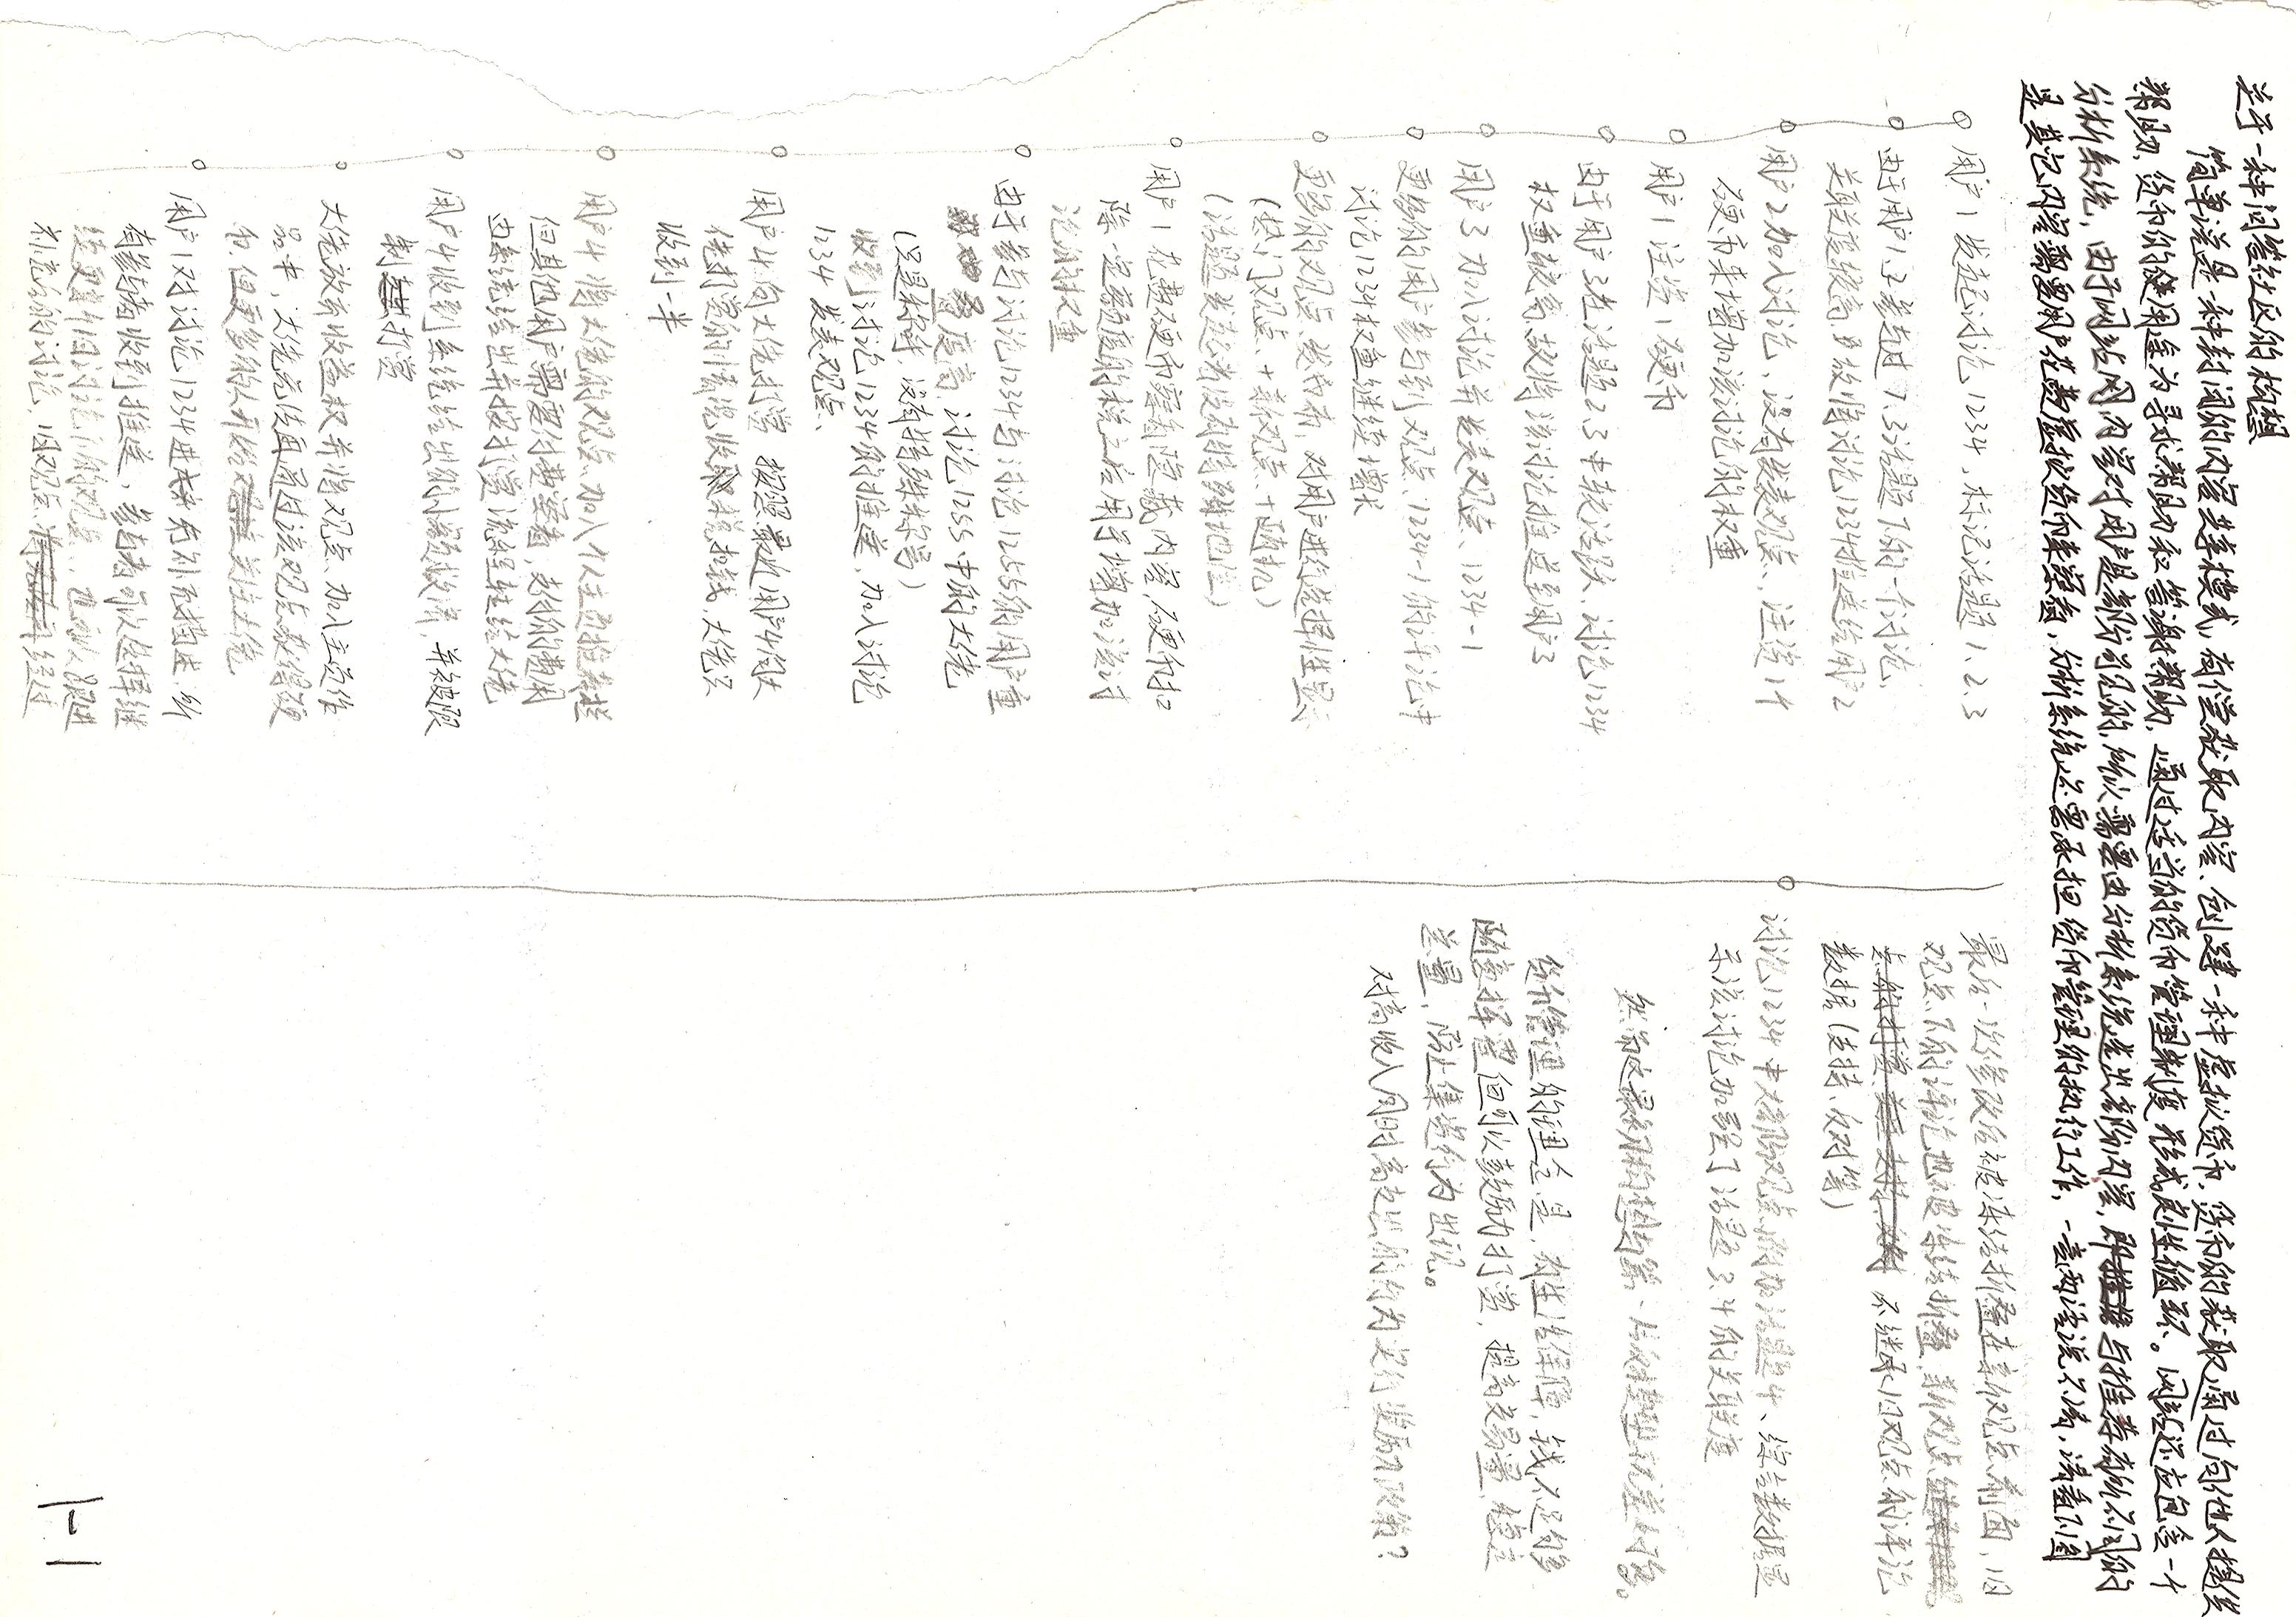 关于一种问答社区的构想
简单说是一种封闭的内容共享模式,有偿获取内容.创建一种虚拟货币,货币的获取通过向他人提供
帮助,货币的使用途为寻求帮助和答谢帮助,通过适当的货币管理制度形成良性循环。网站还应包含一个
分析系统,由于网站网内容对用户是部分可见的,所以需要由分析系统选出部分内容,即推送与推荐有所不同的
是其它内容需要用户花费虚拟货币来察看,分析系统还需承担货币管理的执行工作,一言两语说不清,请看下图
用户1发起讨论1234,标记话题1、2、3
由于用户1、2参与过1、3话题下的一个讨论,
关联度较高,故将讨论1234推送给用户2
用户2加入讨论、没有发表观点,注资1个
硬币来增加该讨论的权重
用户1注资1硬币
由于用户3在话题2、3中较活跃、讨论1234
权重较高,故将该讨论推送至用户3
用户3加入讨论并发表观点、1234-1
更多的用户参与到观点1234-1的评论中
讨论1234权重继续增长
更多的观点发布,对用户进行选择性显示
(热门观点+新观点+随机)
(话题发起者没有特殊地位)
用户1花费硬币察看隐藏内容,硬币扣
除一定额度的税之后用于增加该讨
论的权重
由于参与讨论1234与讨论1255的用户重
叠度高,讨论1255中的大佬
(只是称呼,没有特殊称号)
收到讨论1234的推送,加入讨论
1234发表观点、
用户4向大佬打赏 按照最近用户4向大
佬打赏的情况收取税扣钱,大佬只
收到一半
用户4将大佬的观点加入个人主页推荐栏
但其他用户需要付费察看,支付的费用
由系统给出并按打赏流程转给大佬
用户4收到系统给出的小额救济,并被限
制打赏
大佬放弃收益权并将观点加入主页作
品中,大佬无法再通过该观点获得硬
币,但更多的人开始关注大佬
用户1对讨论1234进行补充描述,所
有参与者收到推送,参与者可以选择继
续更新旧讨论下的观点,也可以跟进
补充后的讨论,旧观点经过
最后一次修改后被冻结折叠在新观点前面,旧
观点下的评论也被冻结折叠,新观点
不继承旧观点的评论
数据(支持、反对等)
讨论1234中大部份观点附加话题4、综合数据显
示该讨论加强了话题3、4的关联度
然而这最初构想与第一片反模型就差好多。
货币管理的理念是,有生活保障,钱不足够多
随意挥霍但可以鼓励打赏,提高交易量,稳定
总量,防止集资行为出现。
对高收入同时高支出的行为实行奖励政策?
1-1